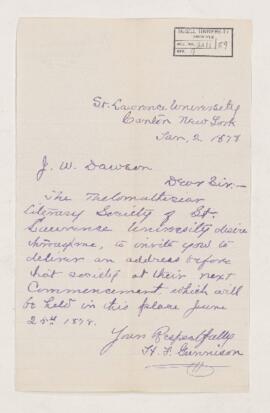 McGILL UNIVERSITY
ARCHIVES
ACC. NO. 2211/59
REF.
St. Lawrence University
Canton New York
Jan, 2 1878
J. W. Dawson
Dear Sir,—
The Thelomathesian
Literary Society of St.
Lawrence University desire
through me, to invite you to
deliver an address before
that society at their next
Commencement which will
be held in this place June
25th 1878.
Yours Respectfully
H. F. Gunnison